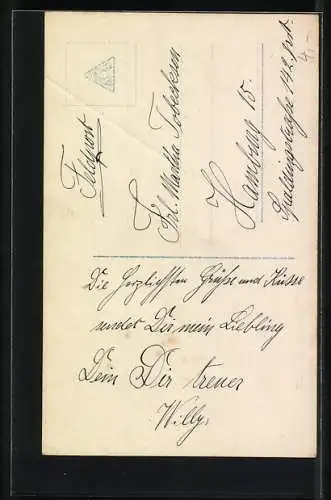 Feldpost
Frl. Martha
Hamburg 15.
Spaldingstraße 142. pt.
Die herzlichsten Grüße und Küsse
sendet Dir mein Liebling
Dein Dir treuer
Willy.